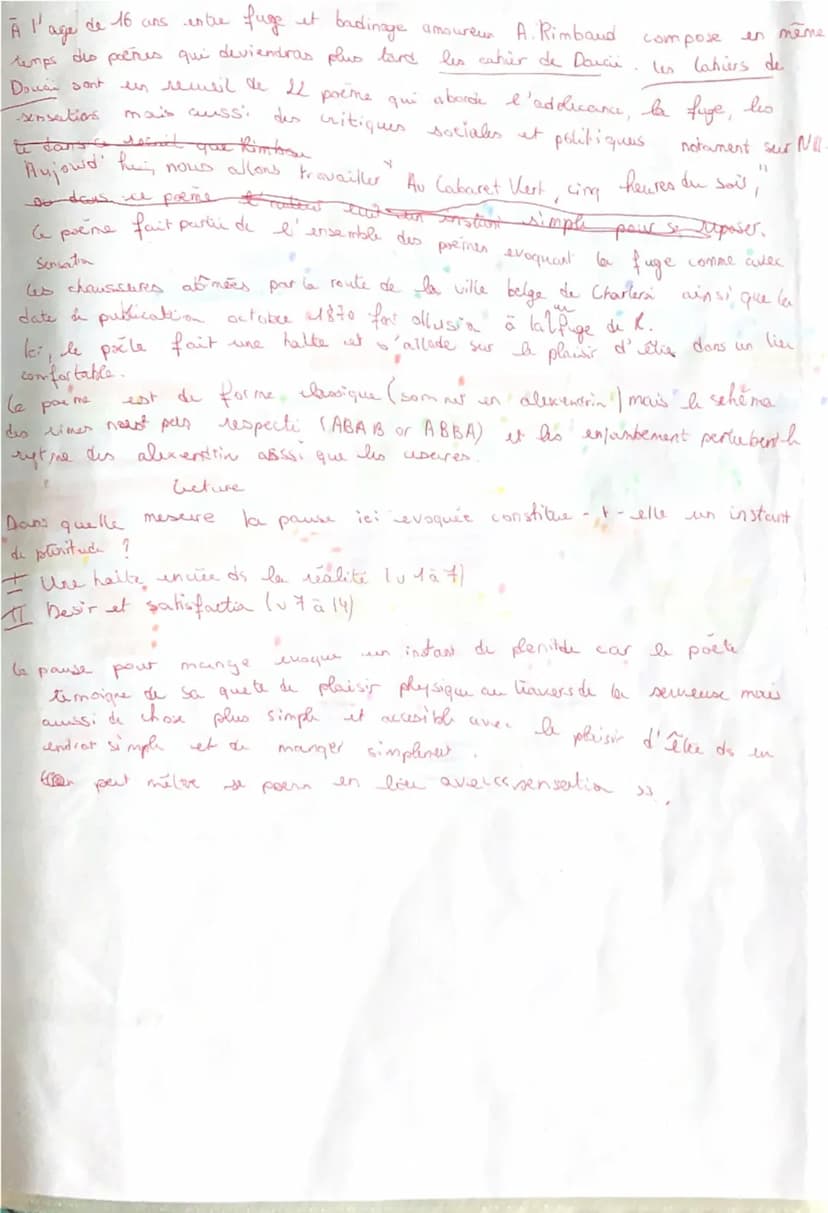 À l'age de 16 ans entre fuge et badinage amoureux A. Rimbaud compose en même
temps des poèmes qui deviendras plus tard les cahier de Douai. Les Cahiers de
Douai sont un recueil de 22 poème qui aborde l'adolicance, la fuge, les
sensations mais aussi des critiques sociales et politiques notament sur NIII.
te dans ce que Rimbau
Aujourd'hui, nous allons travailler "Au Cabaret Vert, cinq heures du soir",
ou dans ce poème l'auteur un instant simple pour se reposer.
Ce poème fait partie de l'ensemble des poèmes evoquant la fuge comme avec
Sensation
Les chaussures abîmées par la route de la ville belge de Charleroi ainsi que la
date de publication octobre 1870 font allusion à la fuge de R.
Ici, le poète fait une halte et s'attade sur le plaisir d'êtie dans un lieu
comfortable.
Le poème est de forme classique (sonnet en alexendrin) mais le schéma
des rimes n'est pas respecté (ABAB or ABBA) et les enjambement pertubent le
rytme des alexendrin aissi que les
Lecture
Dans quelle mesure la pause ici evoquée constitue-t-elle un instant
de plenitude ?
I Une halte encrée ds la réalité (v 1 à 7)
II Desir et satisfaction (v 7 à 14)
La pause pour mange evoque un instant de plenitde car le poète
temoigne de sa quete de plaisir physique au travers de la serveuse mais
aussi de chose plus simple et accesible avec le plaisir d'être ds un
endrot simple et de manger simplement.
peut mettre se poem en lien avec << sensation >>.